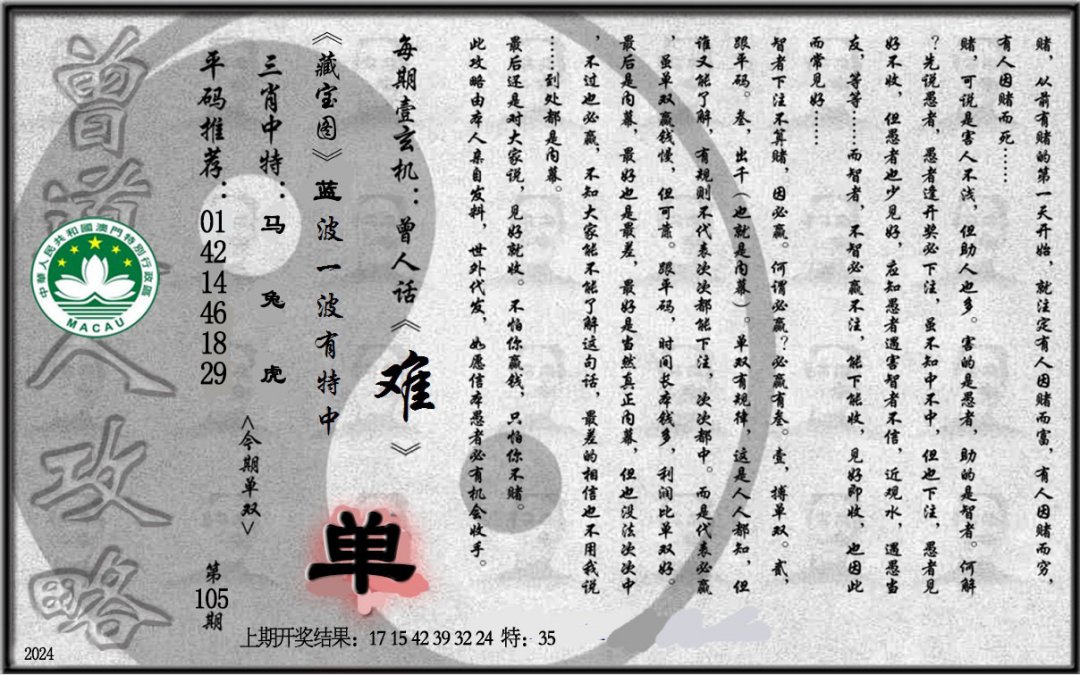 赌，从前有赌的第一天开始，就注定有人因赌而富，有人因赌而穷，
有人因赌而死……
赌，可说是害人不浅，但助人也多。害的是愚者，助的是智者。何解
？先说愚者，愚者逢开奖必下注，虽不知中不中，但也下注，愚者见
好不收，但愚者也少见好，应知愚者遇害智者不信，近观水，遇愚当
友，等等……而智者，不智必赢不注，能下能收，见好即收，也因此
而常见好……
智者下注不算赌，因必赢。何谓必赢？必赢有叁。壹，搏单双。贰，
跟平码。叁，出千（也就是内幕）。单双有规律，这是人人都知，但
谁又能了解，有规则不代表次次都能下注，次次都中。而是代表必赢
，虽单双赢钱慢，但可靠。跟平码，时间长本钱多，利润比单双好。
最后是内幕，最好也是最差，最好是当然真正内幕，但也没法次次中
，不过也必赢，不知大家能不能了解这句话，最差的相信也不用我说
……到处都是内幕。
最后还是对大家说，见好就收。不怕你赢钱，只怕你不赌。
此攻略由本人亲自发料，世外代发，如愿信本愚者必有机会收手。
每期壹玄机：曾人话《难》
《藏宝图》蓝波一波有特中
单
三肖中特：马 兔 虎
<今期单双>
平码推荐：01 42 14 46 18 29
第105期
曾道人攻略
中華人民共和國澳門特別行政區
MACAU
上期开奖结果：17 15 42 39 32 24 特：35
2024